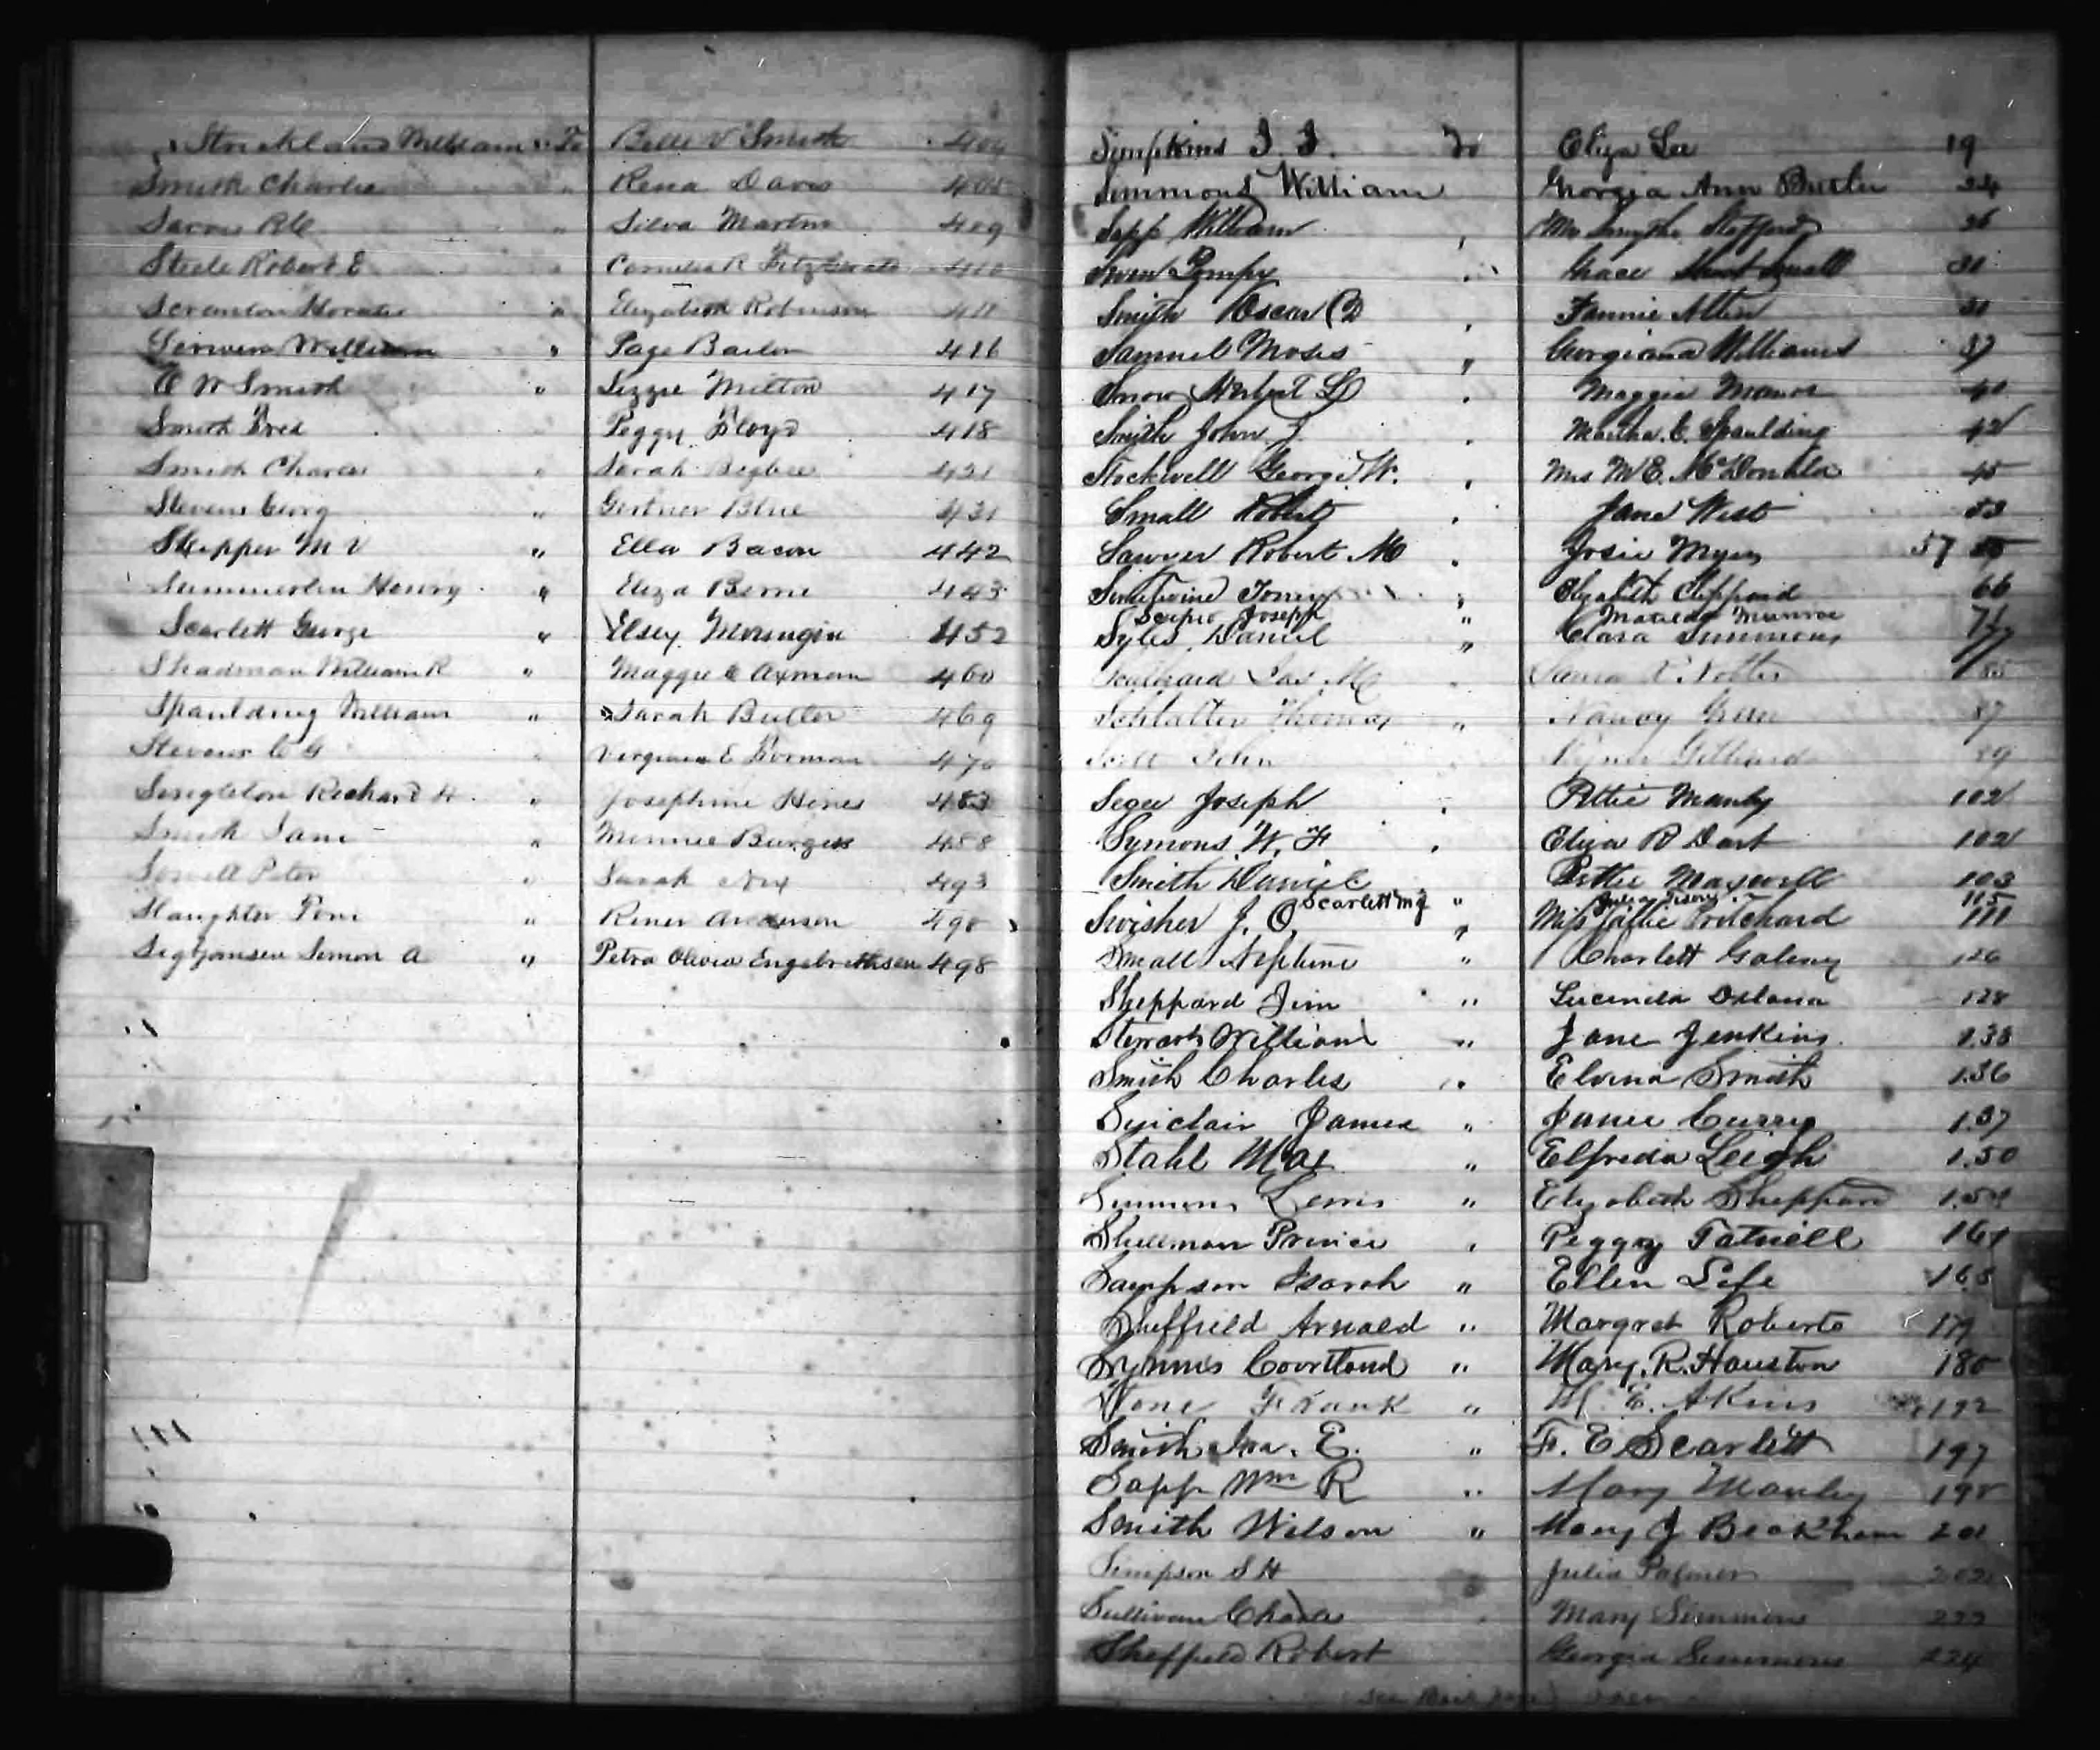 Strickland William To Belle V Smith 404
Smith Charlie " Rena Davis 405
R C " Silva Martin 409
Steele Robert E " Cornelia R Fitzgerald 410
Scranton Horatio " Elizabeth Robinson 411
William " Page 416
C W Smith " Lizzie Milton 417
Smith Fred Peggy Floyd 418
Smith Charles " Sarah Bigbee 421
Stevens Georg " Gertner Blue 431
Skipper M V " Ella Bacon 442
Summerlin Henry " Eliza 443
Scarlett George " Elsey Mosungin 452
Shadman William R " Maggie C Axman 460
Spaulding William " Sarah Butler 469
Stevens C G " Virginia E Forman 470
Singleton Richard H " Josephine Hines 483
Smith Sam " Minnie Burgess 488
Sowell Peter " Sarah Nix 493
Slaughter Tom " Riner Anderson 490
Sigtjomsen Simon A " Petra Olivia Engebrethsen 498
Simpkins To Eliza Lee 19
Simmons William Georgia Ann Butler 24
Sapp William Stafford 26
Pompy Grace Small 30
Smith Oscar Fannie Allen 31
Samuel Moses " Georgiana Williams 37
Snow L Maggie Manor 40
Smith John J. Martha E. Spaulding 42
Stockwell George W. Mrs M E. McDonald 45
Small Robert Jane West 53
Sawyer Robert M Josie Myers 57
Tony Elizabeth Clippard 66
Scipio Joseph " Matilda Munroe 71
Syles Daniel " Clara Simmons 77
Jas. M 85
Schlatter Thomas " Nancy Green 87
Scott John Gilliard 89
Segee Joseph Pettie Manly 102
Symons W. F Eliza R Dart 102
Smith Daniel Bettie Maxwell 103
Scarlett " 115
Swisher J. O. " Miss Pritchard 111
Small Neptune " Charlett Galeny 126
Sheppard Jim " Lucinda 128
Stewart William " Jane Jenkins 133
Smith Charles " Elvina Smith 136
Sinclair James " Janie Currie 137
Stahl Max " Elfreda Leigh 150
Simmons Lewis " Elizabeth Sheppard
Shellman Prince Peggy Tatnell 161
Sampson Isarah " Ellen Life 165
Sheffield Arnald " Margret Roberts 179
Symmes Courtland " Mary. R. Hauston 180
Stone Frank " M. E. Akins 192
Smith E. " F. E Scarlett 197
Sapp Wm R " Mary Manley 198
Smith Wilson " Mary J Beckham 201
Simpson S H Julia Palmer 202
Sullivan Charles Mary Simmons 222
Sheffield Robert Georgia Simmons 224
See Back page